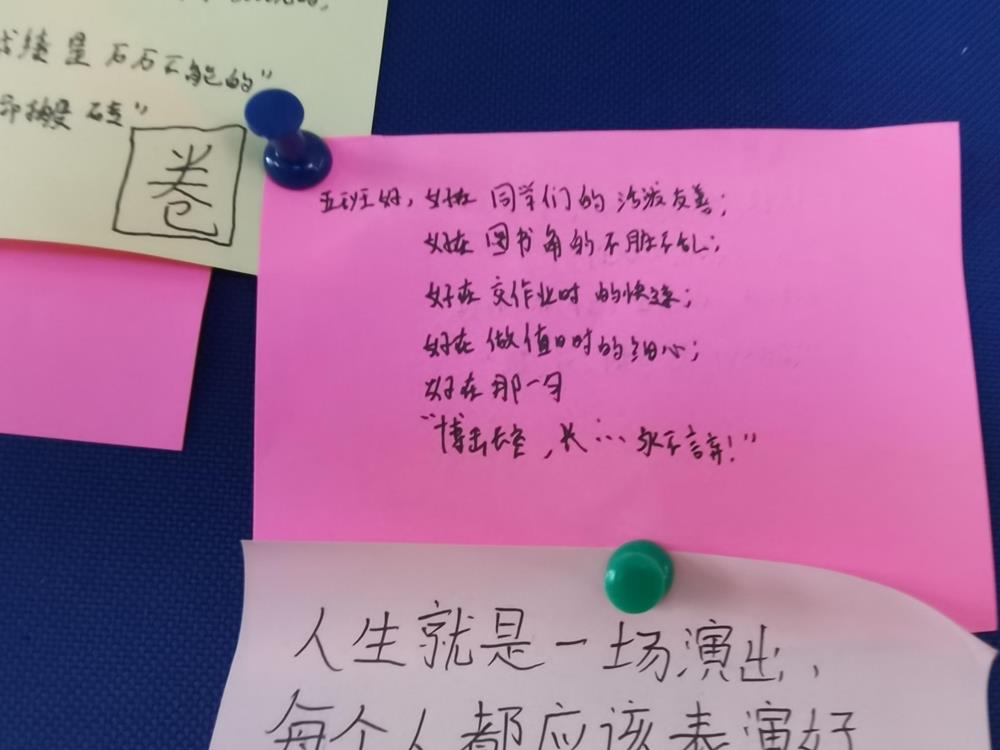 成绩是万万不能的”
即搬砖”
卷
五班好，好在同学们的活泼友善；
好在图书角的不脏不乱；
好在交作业时的快速；
好在做值日时的细心；
好在那一句
“搏击长空，长…永不言弃！”
人生就是一场演出，
每个人都应该表演好